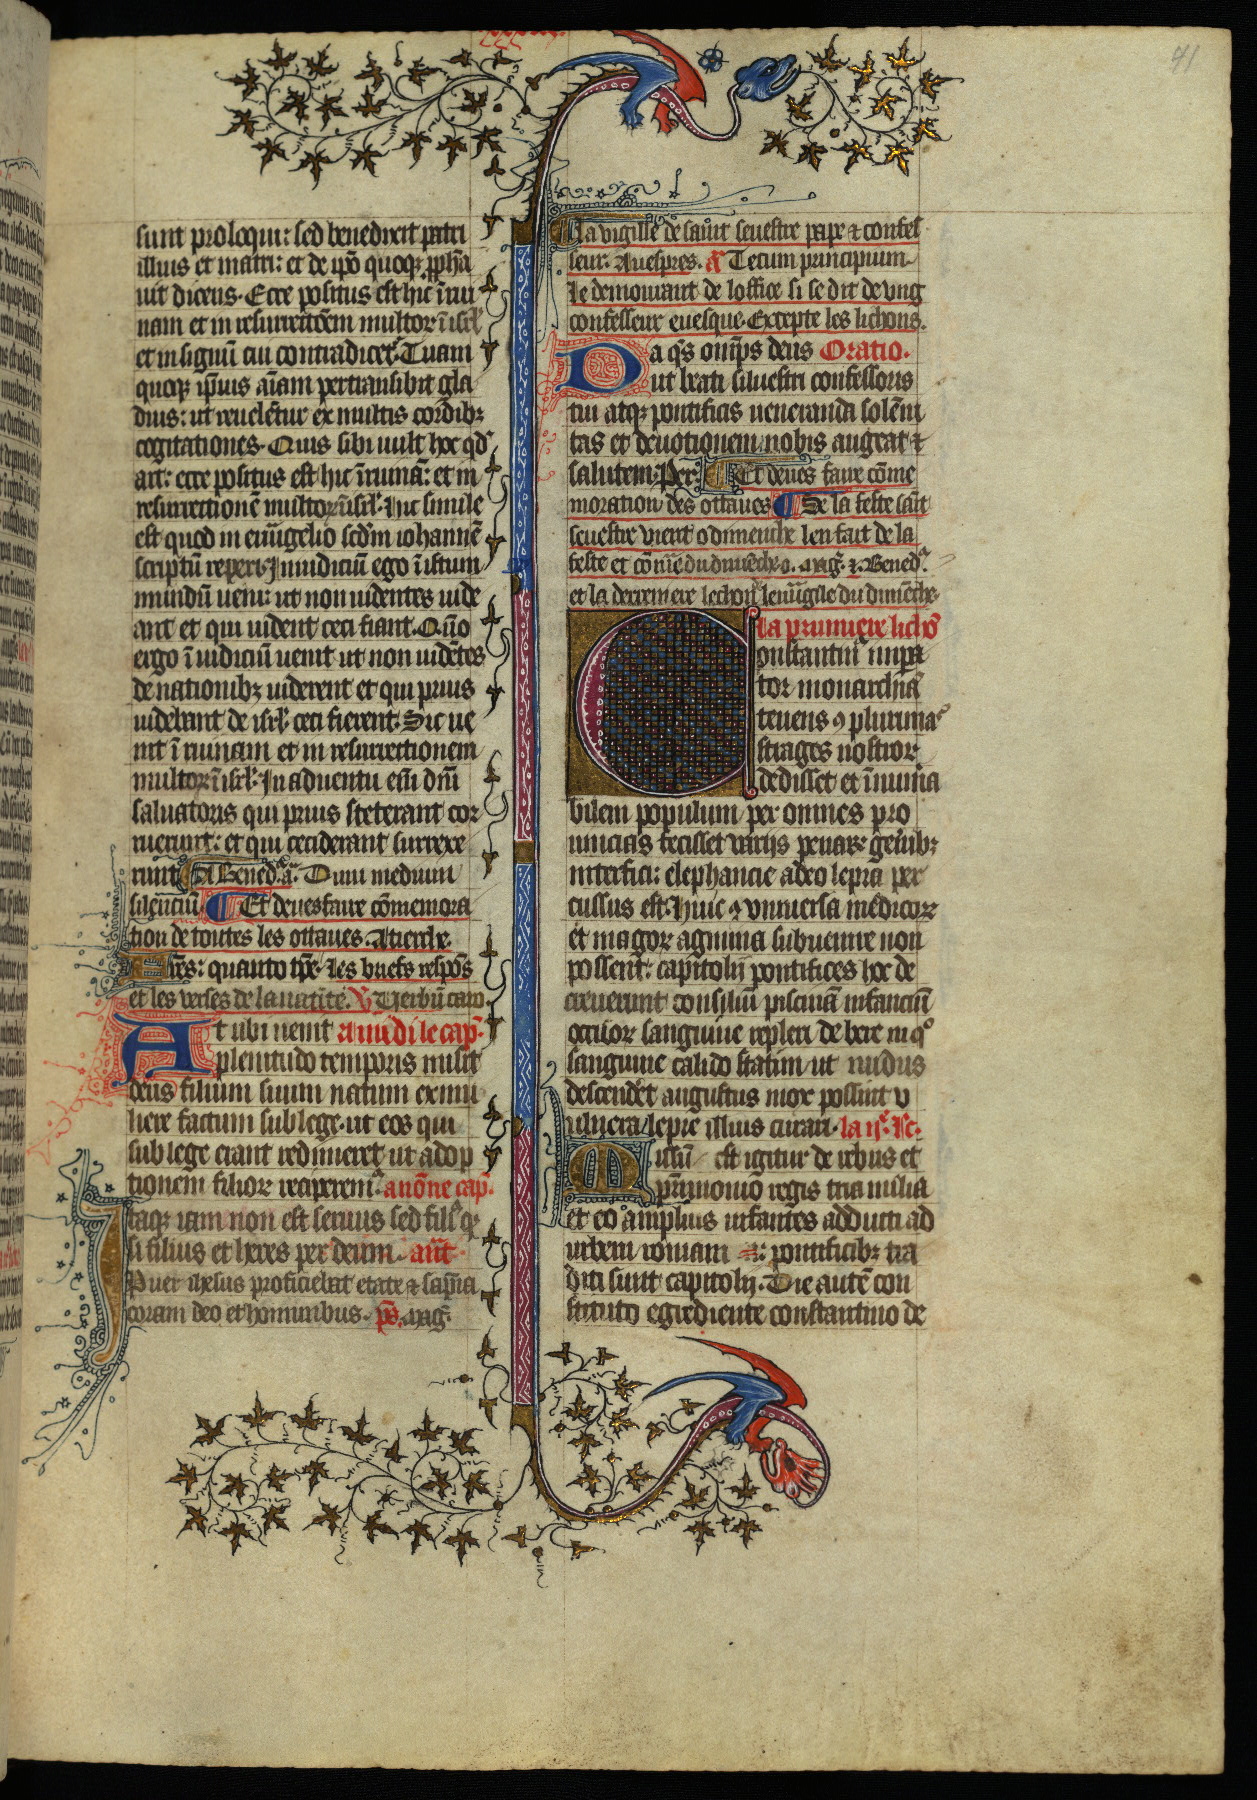 71
sunt proloqui: sed benedixit patri
illius et matri: et de ip̃o quoqꝫ ꝓpħa
uit dicens. Ecce positus est hic ĩ rui
nam et in resurrectiõem multoꝝ ĩ isrł
et in signũ cui contradicet᷑. Tuam
quoqꝫ ip̃ius aĩam pertransibit gla
dius: ut reuelẽtur ex multis cordibꝫ
cogitationes. Quis sibi uult hoc qd̾
ait: ecce positus est hic ĩ ruinã: et in
resurrectionẽ multoꝝ ĩ isrł. Huic simile
est quod in euũgelio scd̃m iohannẽ
scriptũ reperi. In iudiciũ ego ĩ istum
mundũ ueni: ut non uidentes uide
ant et qui uident ceci fiant. Quõ
ergo ĩ iudiciũ uenit ut non uidẽtes
de nationibꝫ uiderent et qui prius
uidebant de isrł ceci fierent. Sic ue
nit ĩ ruinam et in resurrectionem
multoꝝ ĩ isrł. In aduentu eni᷑ dñi
saluatoris qui prius steterant cor
ruerunt: et qui ceciderant surrexe
runt. A Bened. añ. Dum medium
silẽtiũ. Et deues faire cõmemora
tion de toutes les ottaues. A tierche.
Fr̃es: quanto tp̃e. les briefs respõs
et les verses de la natiuite. ꝟ Uerbũ caro.
At ubi uenit a midi le cap̃.
plenitudo temporis misit
deus filium suum natum ex mu
liere factum sub lege. ut eos qui
sub lege erant redimeret ut adop
tionem filioꝝ reciperem᷑. a nõne cap̃.
Itaqꝫ iam non est seruus sed fili᷒ qꝫ
si filius et heres per deum. añt
Puer ihesus proficiebat etate ⁊ sap̃ia
coram deo et hominibus. p̃s. mag̃.
En la vigille de saint seuestre pape ⁊ confes
seur. A uespres. añ Tecum principium.
Le demourant de loffice si se dit de vng
confesseur euesque. Excepte les lichons.
Da q̃s omp̃s deus Oratio.
ut beati siluestri confessoris
tui atqꝫ pontificis ueneranda solẽni
tas et deuotionem nobis augeat ⁊
salutem. Per. Et deues faire cõme
moration des ottaues. Se la feste saīt
seuestre vient o dimenche len fait de la
feste et cõme du dimẽche. a. mag̃. ⁊ Bened̾.
et la derreniere lechon. leuũgile du dimẽche.
la primiere lichõ
Constantin᷒ impa
tor monarchiã
tenens ⁊ plurimas
strages nostroꝝ
dedisset et ĩnumia
bilem populum per omnes pro
uincias fecisset variis penaꝝ gen̾ibꝫ
interfici: elephancie adeo lepra per
cussus est. Huic ⁊ vniuersa medicoꝝ
et magoꝝ agmina subuenire non
possent: capitolij pontifices hoc de
creuerunt consiliũ piscinã infanciũ
occisoꝝ sanguine repleri debere in q̊
sanguine calido statim ut nudus
descenderet augustus mox possint v
ulnera lepre illius curari. la ijᵉ. lc̃.
Missũ est igitur de rebus et
p̃rimonio regis tria milia
et eo amplius infantes adducti ad
urbem romam ⁊: pontificibꝫ tra
diti sunt capitolij. Die autẽ con
stituto egrediente constantino de